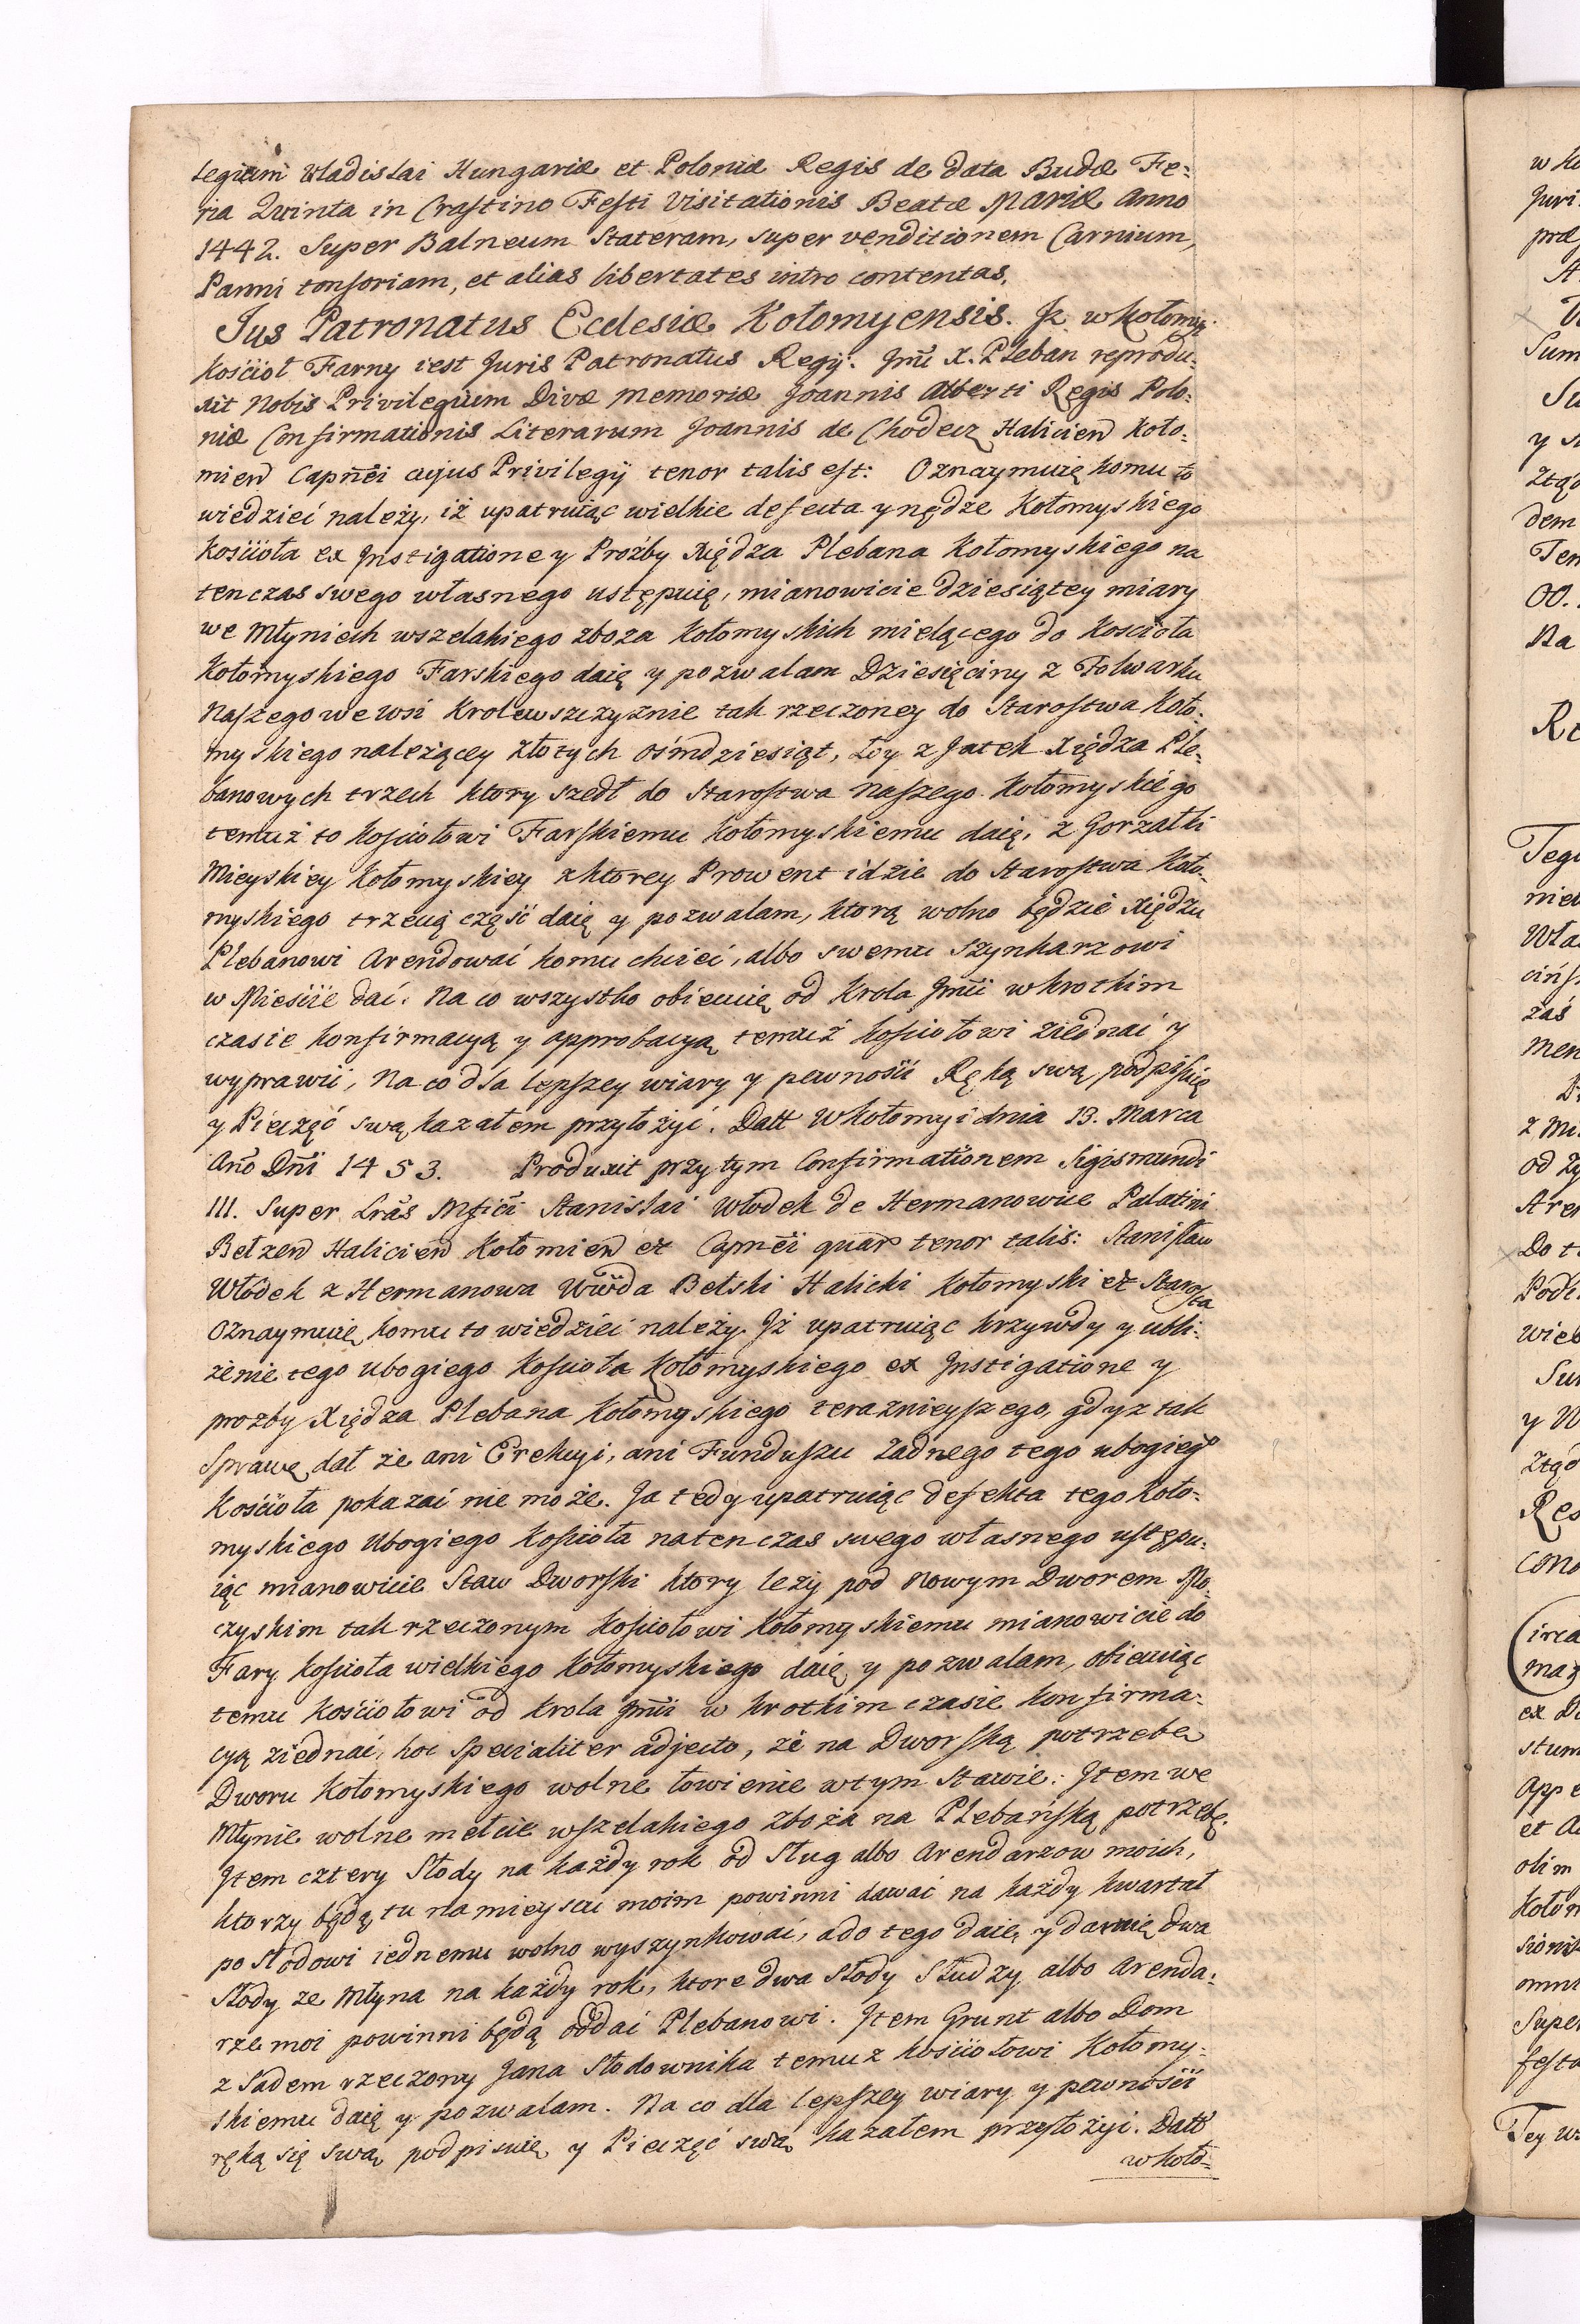 legium Wladislai Hungariæ et Poloniæ Regis de data Budæ Fe:
ria Qvinta in Crastino Festi Visitationis Beatæ Mariæ Anno
1442. Super Balneum Stateram, super venditionem Carnium,
Panni tonsoriam, et alias libertates intro contentas.
Jus Patronatus Ecclesiæ Kołomyensis. Jż w Kołomyi
Kościoł Farny iest Juris Patronatus Regij. Jmć X. Pleban reprodu:
xit Nobis Privilegium Divæ Memoriæ Joannis Alberti Regis Polo:
niæ Confirmationis Literarum Joannis de Chodecz Halicien Koło:
mien Capnei cujus Privilegij tenor talis est: Oznaymuię komu to
wiedzieć należy, iż upatruiąc wielkie defecta y nędze Kołomyskiego
Kościoła ex Jnstigatione y Proźby Xiędza Plebana Kołomyskiego na
tenczas swego własnego ustępuię, mianowicie dziesiątey miary
we Młyniech wszelakiego zboża Kołomyskich mielącego do Kościoła
Kołomyskiego Farskiego daię y pozwalam Dziesięciny z Folwarku
Naszego we wsi Krolewszczyznie tak rzeczoney do Starostwa Koło:
myskiego należącey złotych ośmdziesiąt, Łoy z Jatek Xiędza Ple:
banowych trzech ktory szedł do Starostwa Naszego Kołomyskiego
temuż to Kościołowi Farskiemu Kołomyskiemu daię, z Gorzałki
Mieyskiey Kołomyskiey z ktorey Prowent idzie do Starostwa Koło:
myskiego trzecią część daię y pozwalam, ktorą wolno będzie Xiędzu
Plebanowi Arendować komu chcieć, albo swemu Szynkarzowi
w Mieście dać. Na co wszystko obiecuię od Krola Jmći w krotkim
czasie konfirmacyą y approbacyą temuż Kościołowi ziednać y
wyprawić, Na co dla lepszey wiary y pewności Ręką swą podpisuię
y Pieczęć swą kazałem przyłożyć. Datt w Kołomyi dnia 13. Marca
Ano Dni 1453. Produxit przytym Confirmationem Sigismundi
III. Super Lras Mfici Stanislai Włodek de Hermanowice Palatini
Bełzen Halicien Kołomien et Capnei quar tenor talis: Stanisław
Włodek z Hermanowa Wwda Bełski Halicki Kołomyski et Starosta
Oznaymuię komu to wiedzieć należy. Jż upatruiąc krzywdy y ubli:
żenie tego ubogiego Kościoła Kołomyskiego ex Jnstigatione y
prozby Xiędza Plebana Kołomyskiego teraznieyszego, gdyz tak
Sprawę dał że ani Erekcyi, ani Funduszu żadnego tego ubogiego
Kościoła pokazać nie może. Ja tedy upatruiąc defekta tego Koło:
myskiego Ubogiego Kościoła natenczas swego własnego ustępu:
iąc mianowicie Staw Dworski ktory leży pod Nowym Dworem Mo:
czyskim tak rzeczonym Kościołowi Kołomyskiemu mianowicie do
Fary Kościoła wielkiego Kołomyskiego daię y pozwalam, obiecuiąc
temu Kościołowi od Krola Jmći w krotkim czasie konfirma:
cyą ziednać, hoc specialiter adjecto, że na Dworską potrzebę
Dworu Kołomyskiego wolne łowienie w tym Stawie. Jtem we
Młynie wolne mełcie wszelakiego zboża na Plebańską potrzebę.
Jtem cztery Słody na każdy rok od Sług albo Arendarzow moich,
ktorzy będą tu na mieyscu moim powinni dawać na każdy kwartał
po Słodowi iednemu wolno wyszynkować, a do tego daię y daruię dwa
Słody ze Młyna na każdy rok, ktore dwa Słody Słudzy albo Arenda:
rze moi powinni będą oddać Plebanowi. Jtem Grunt albo Dom
z Sadem rzeczony Jana Słodownika temuz Kościołowi Kołomy:
skiemu daię y pozwalam. Na co dla lepszey wiary y pewności
ręką się swą podpisuię y Pieczęć swą kazałem przyłożyć. Datt
w Koło: